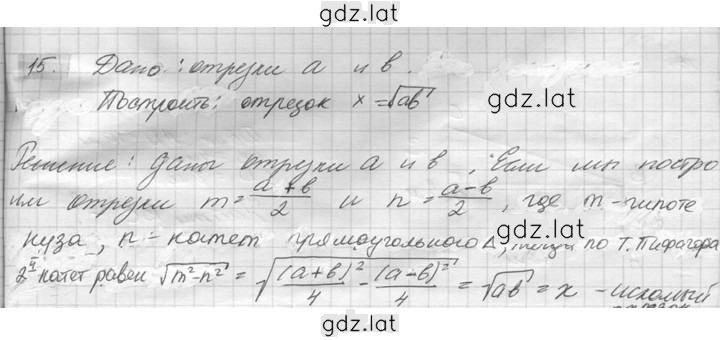 gdz.lat
15. Дано: отрезки a и в.
Построить: отрезок x = √ав
gdz.lat
Решение: даны отрезки a и в, Если мы постро
им отрезки m = (a+в)/2 и n = (a-в)/2, где m - гипоте
gdz.lat
нуза, n - катет прямоугольного Δ, по т. Пифагора
2й катет равен √m²-n² = √(a+в)²/4 - (a-в)²/4 = √ав = x - искомый
отрезок
gdz.lat